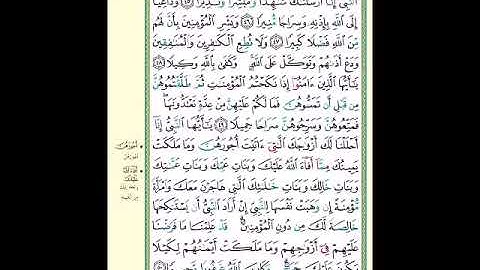 ٱلنَّبِىُّ إِنَّآ أَرْسَلْنَٰكَ شَٰهِدًا وَمُبَشِّرًا وَنَذِيرًا ٤٥ وَدَاعِيًا
إِلَى ٱللَّهِ بِإِذْنِهِۦ وَسِرَاجًا مُّنِيرًا ٤٦ وَبَشِّرِ ٱلْمُؤْمِنِينَ بِأَنَّ لَهُم
مِّنَ ٱللَّهِ فَضْلًا كَبِيرًا ٤٧ وَلَا تُطِعِ ٱلْكَٰفِرِينَ وَٱلْمُنَٰفِقِينَ
وَدَعْ أَذَىٰهُمْ وَتَوَكَّلْ عَلَى ٱللَّهِ ۚ وَكَفَىٰ بِٱللَّهِ وَكِيلًا ٤٨
يَٰٓأَيُّهَا ٱلَّذِينَ ءَامَنُوٓا۟ إِذَا نَكَحْتُمُ ٱلْمُؤْمِنَٰتِ ثُمَّ طَلَّقْتُمُوهُنَّ
مِن قَبْلِ أَن تَمَسُّوهُنَّ فَمَا لَكُمْ عَلَيْهِنَّ مِنْ عِدَّةٍ تَعْتَدُّونَهَا ۖ
فَمَتِّعُوهُنَّ وَسَرِّحُوهُنَّ سَرَاحًا جَمِيلًا ٤٩ يَٰٓأَيُّهَا ٱلنَّبِىُّ إِنَّآ
أَحْلَلْنَا لَكَ أَزْوَٰجَكَ ٱلَّٰتِىٓ ءَاتَيْتَ أُجُورَهُنَّ وَمَا مَلَكَتْ
يَمِينُكَ مِمَّآ أَفَآءَ ٱللَّهُ عَلَيْكَ وَبَنَاتِ عَمِّكَ وَبَنَاتِ عَمَّٰتِكَ
وَبَنَاتِ خَالِكَ وَبَنَاتِ خَٰلَٰتِكَ ٱلَّٰتِى هَاجَرْنَ مَعَكَ وَٱمْرَأَةً
مُّؤْمِنَةً إِن وَهَبَتْ نَفْسَهَا لِلنَّبِىِّ إِنْ أَرَادَ ٱلنَّبِىُّ أَن يَسْتَنكِحَهَا
خَالِصَةً لَّكَ مِن دُونِ ٱلْمُؤْمِنِينَ ۗ قَدْ عَلِمْنَا مَا فَرَضْنَا
عَلَيْهِمْ فِىٓ أَزْوَٰجِهِمْ وَمَا مَلَكَتْ أَيْمَٰنُهُمْ لِكَيْلَا
يَكُونَ عَلَيْكَ حَرَجٌ ۗ وَكَانَ ٱللَّهُ غَفُورًا رَّحِيمًا ٥٠